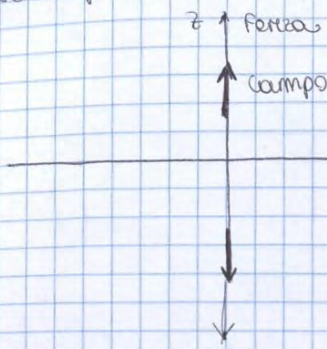 z Forza
Campo